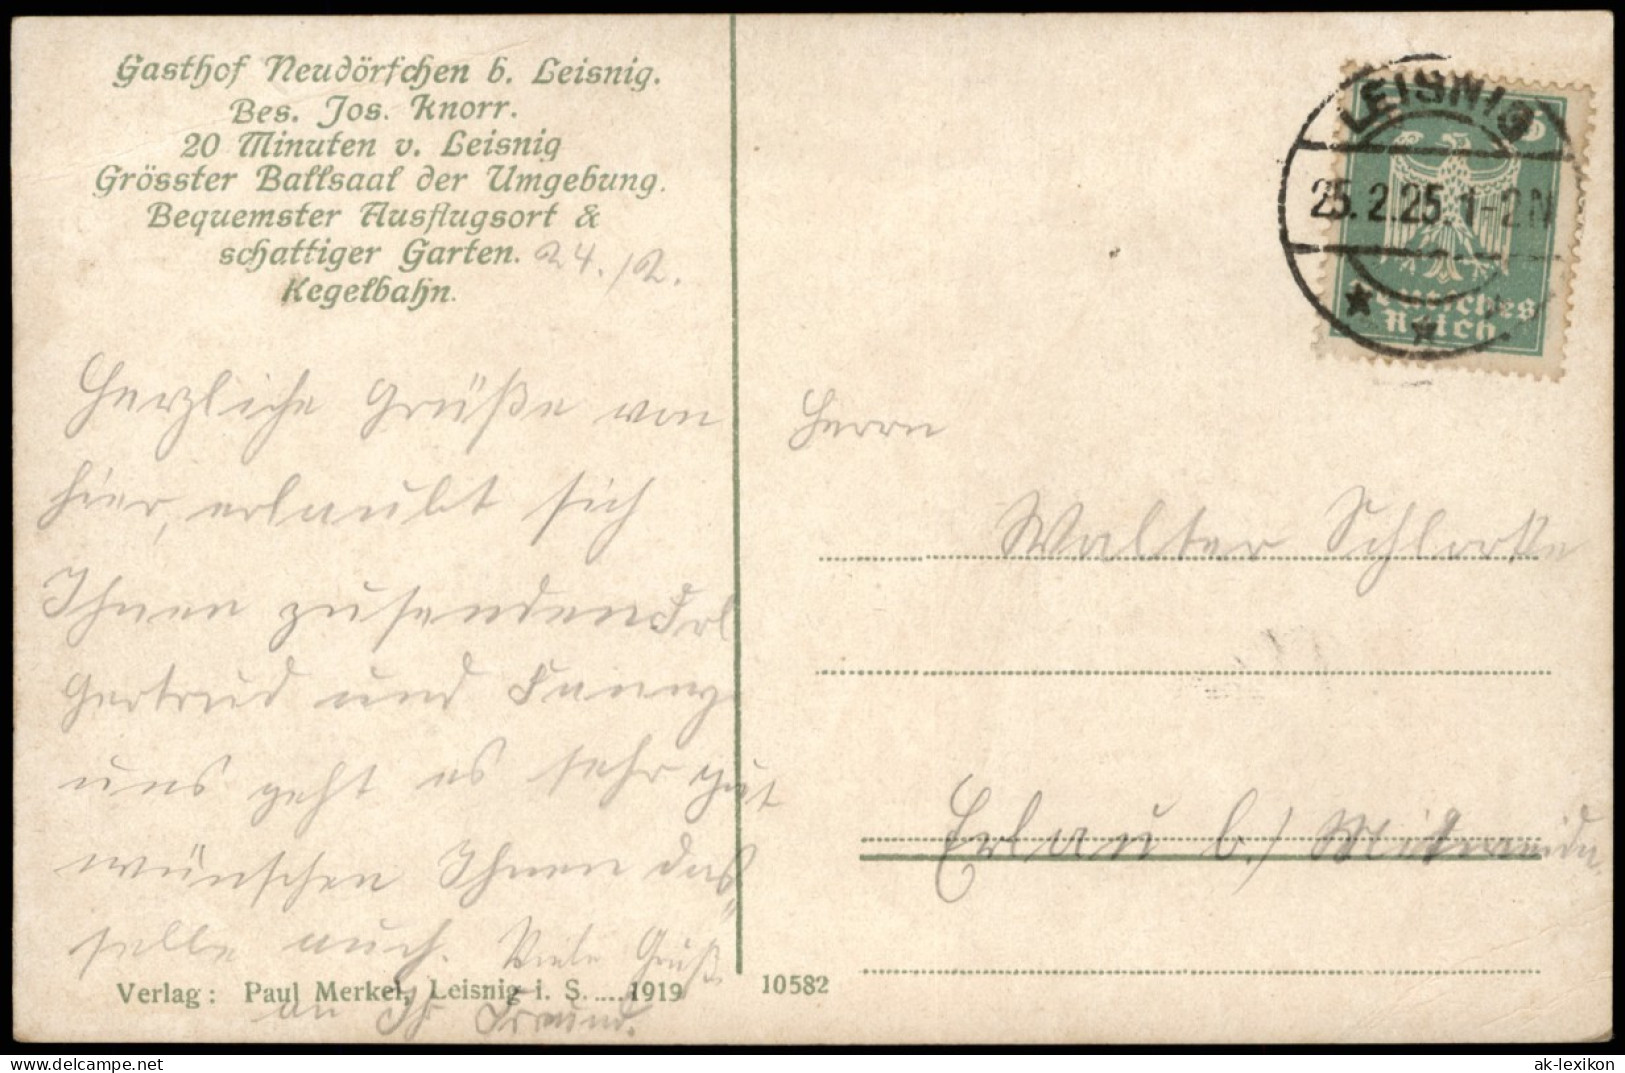 Gasthof Neudörfchen b. Leisnig.
Bes. Jos. Knorr.
20 Minuten v. Leisnig
Grösster Ballsaal der Umgebung.
Bequemster Ausflugsort &
schattiger Garten. 24./2.
Kegelbahn.
Herzliche Grüße von
hier, erlaubt sich
Ihnen zusenden Frl
Gertrud und Fanny
uns geht es sehr gut
wünschen Ihnen das
selle auch. Viele Grüß.
an Ihr Freund.
Verlag: Paul Merkel, Leisnig i. S. .... 1919
10582
LEISNIG
25.2.25.1-2N
5
Deutsches
Reich
Herrn
Walter
Erlau b./ Mittweida
www.delcampe.net
ak-lexikon